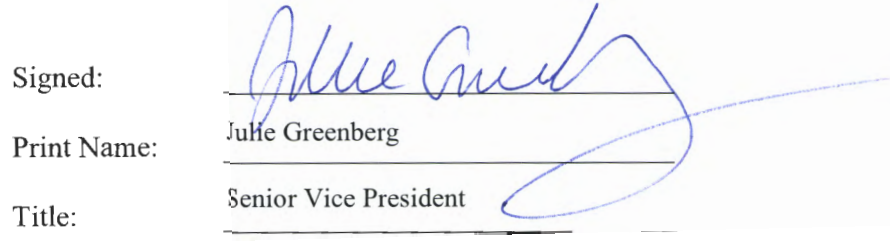 Signed: Julie Greenberg
Print Name: Julie Greenberg
Title: Senior Vice President